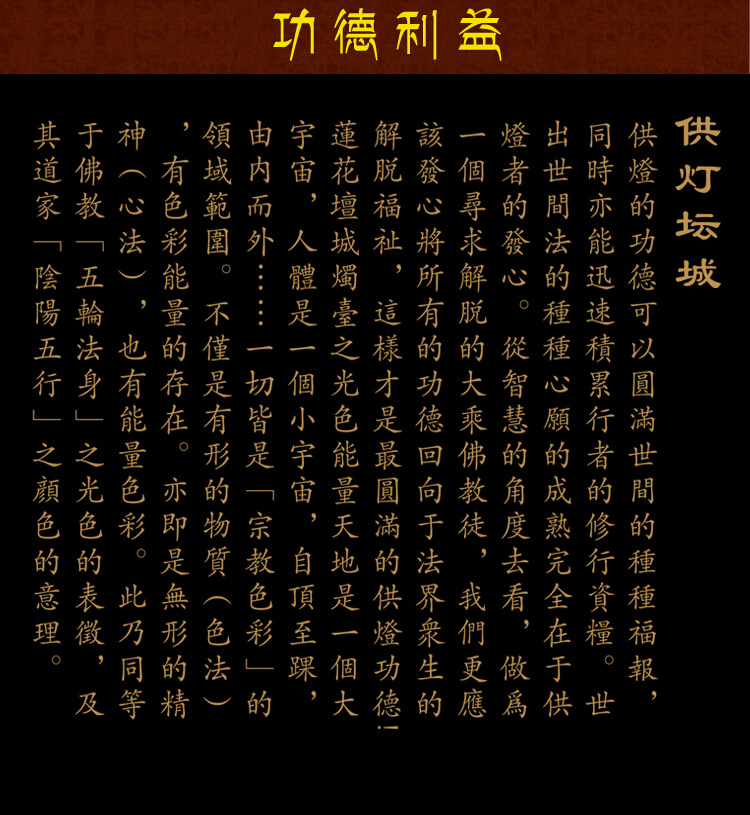 功德利益
供灯坛城
供燈的功德可以圓滿世間的種種福報，
同時亦能迅速積累行者的修行資糧。世
出世間法的種種心願的成熟完全在于供
燈者的發心。從智慧的角度去看，做爲
一個尋求解脱的大乘佛教徒，我們更應
該發心將所有的功德回向于法界衆生的
解脱福祉，這樣才是最圓滿的供燈功德
蓮花壇城燭臺之光色能量天地是一個大
宇宙，人體是一個小宇宙，自頂至踝，
由内而外……一切皆是「宗教色彩」的
領域範圍。不僅是有形的物質（色法）
，有色彩能量的存在。亦即是無形的精
神（心法），也有能量色彩。此乃同等
于佛教「五輪法身」之光色的表徵，及
其道家「陰陽五行」之顔色的意理。